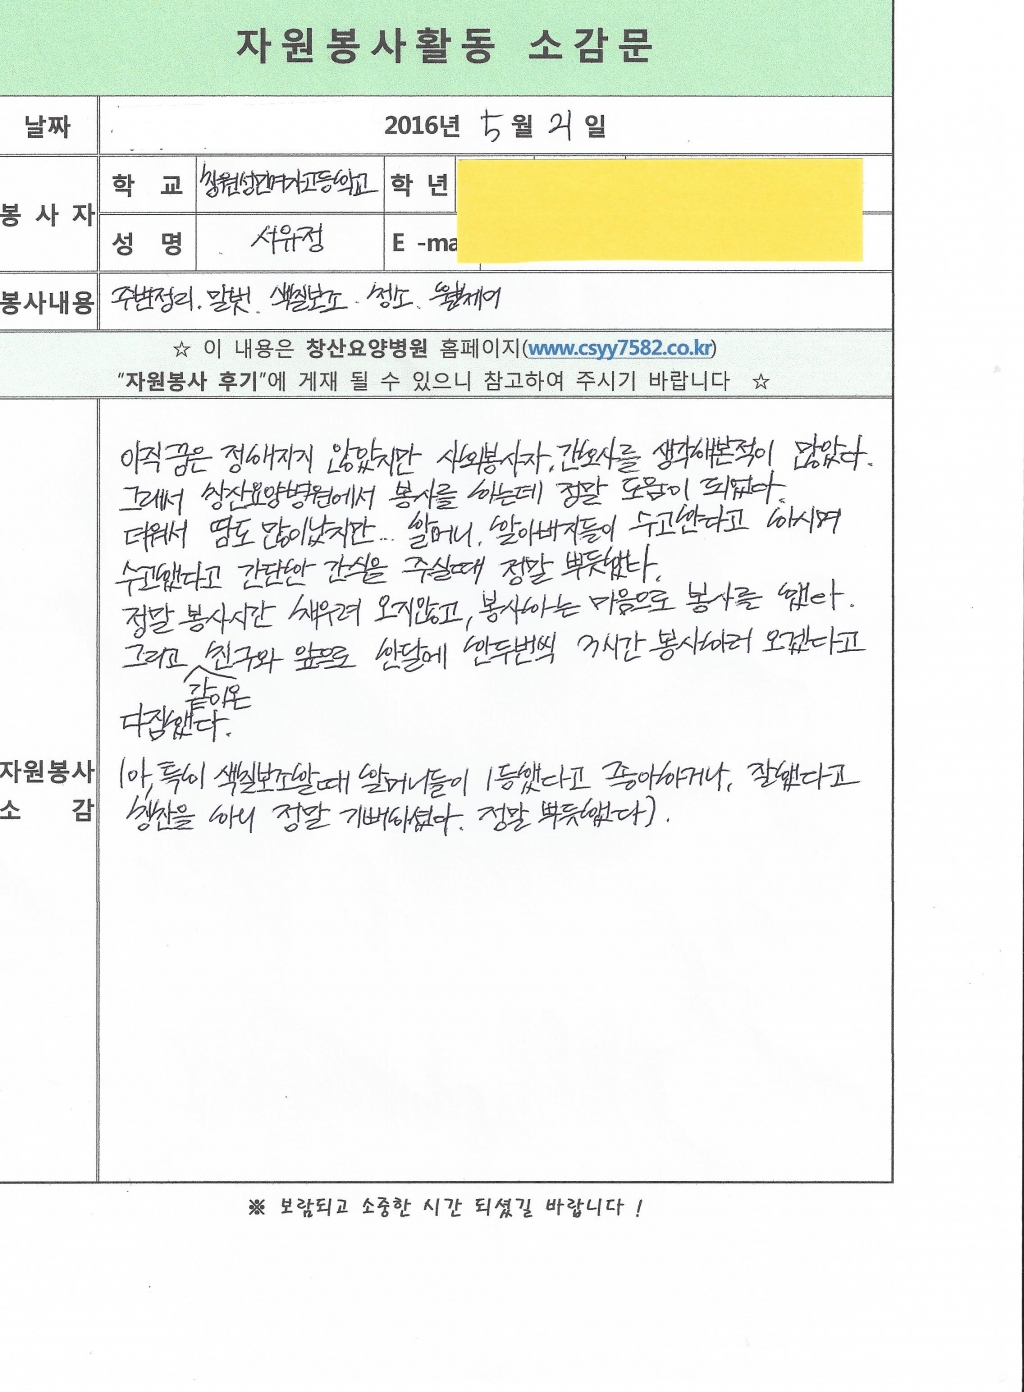 자원봉사활동 소감문
날짜 2016년 5월 21일
봉사자
학 교 창원성민여자고등학교 학 년
성 명 서유정 E -ma
봉사내용 주변정리. 말벗. 색칠보조. 청소. 휠체어
☆ 이 내용은 창산요양병원 홈페이지(www.csyy7582.co.kr)
“자원봉사 후기”에 게재 될 수 있으니 참고하여 주시기 바랍니다 ☆
아직 꿈은 정해지지 않았지만 사회봉사자, 간호사를 생각해본적이 많았다.
그래서 창산요양병원에서 봉사를 하는데 정말 도움이 되었다.
더워서 땀도 많이났지만... 할머니, 할아버지들이 수고한다고 하시며
수고했다고 간단한 간식을 주실때 정말 뿌듯했다.
정말 봉사시간 채우려 오지않고, 봉사하는 마음으로 봉사를 했다.
그리고 친구와 앞으로 한달에 한두번씩 3시간 봉사하러 오겠다고
같이온
다짐했다.
자원봉사 소 감
(아, 특히 색칠보조할때 할머니들이 1등했다고 좋아하거나, 잘했다고
칭찬을 하니 정말 기뻐하셨다. 정말 뿌듯했다).
※ 보람되고 소중한 시간 되셨길 바랍니다 !